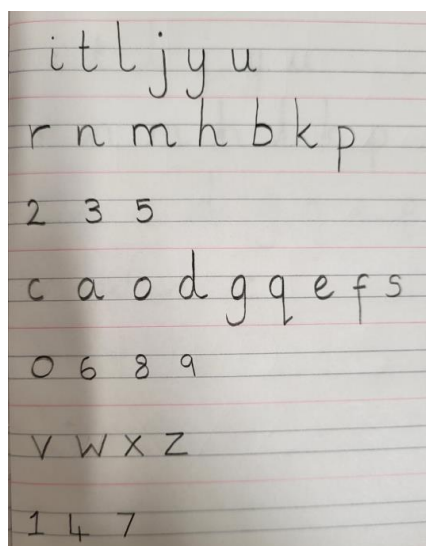 i t l j y u
r n m h b k p
2 3 5
c a o d g q e f s
0 6 8 9
v w x z
1 4 7